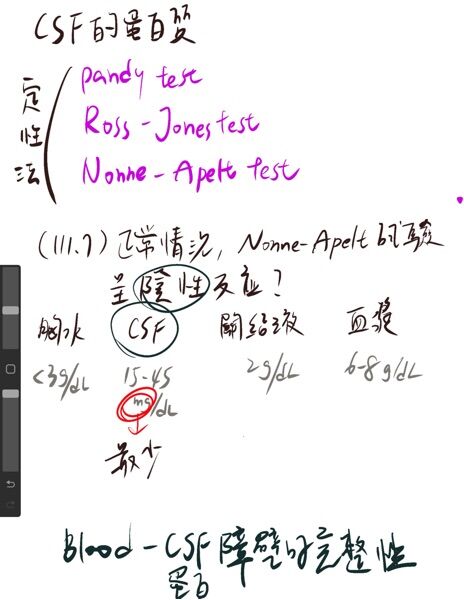 CSF的蛋白質
定性法
pandy test
Ross-Jones test
Nonne-Apelt test
(111.7) 正常情況, Nonne-Apelt 的試驗
呈陰性反應?
胸水 CSF 關節液 血漿
<3g/dL 15-45 mg/dL 2g/dL 6-8g/dL
最少
Blood-CSF障壁的完整性
蛋白